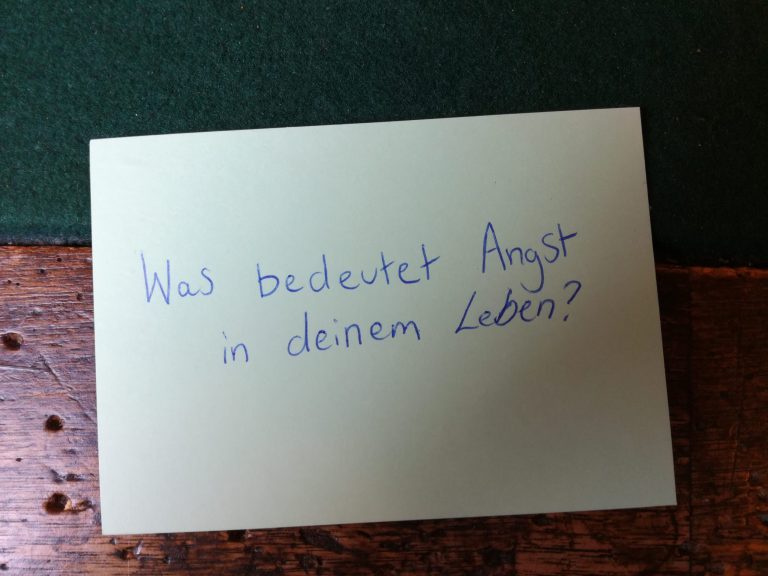 Was bedeutet Angst
in deinem Leben?